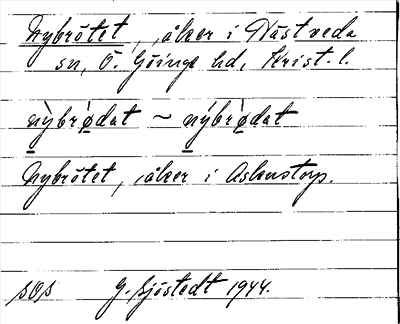 Nybrötet, åker i Hästveda
sn, Ö. Göinge hd, Krist. l.
nỳbrø̀dat ~ nýbrø̀dat
Nybrötet, åker i Askastorp.
SOS G. Sjöstedt 1944.